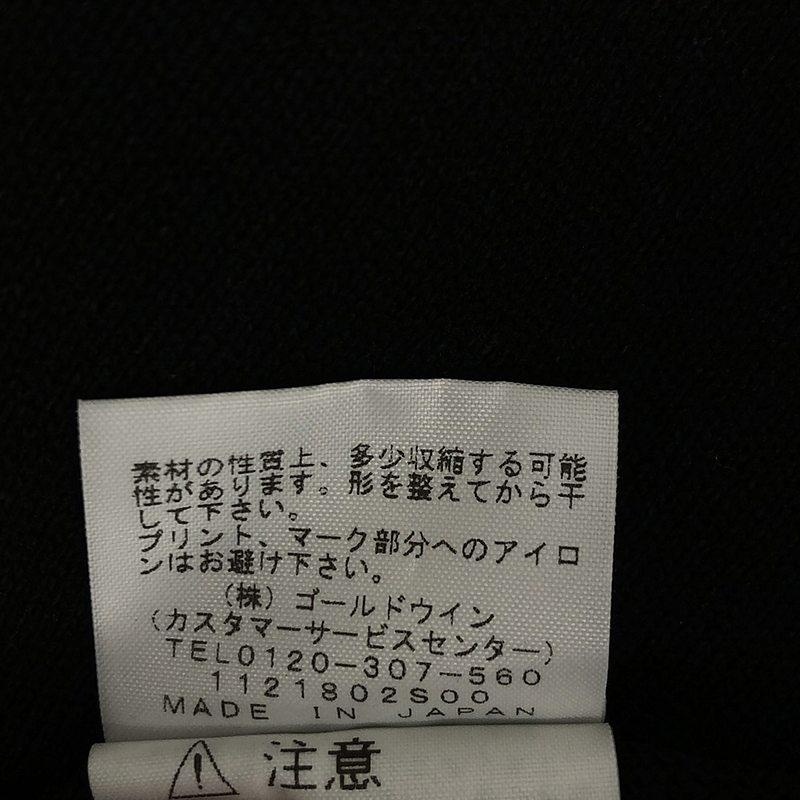 素材の性質上、多少収縮する可能
性があります。形を整えてから干
して下さい。
プリント、マーク部分へのアイロ
ンはお避け下さい。
(株)ゴールドウイン
(カスタマーサービスセンター)
TEL0120-307-560
1121802S00
MADE IN JAPAN
注意